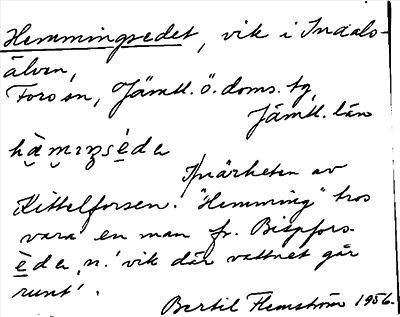 Hemmingsedet, vik i Indals-
älven,
Fors sn, Jämtl. ö. doms. tg,
Jämtl. län
I närheten av
Kittelforsen. "Hemming" tros
vara en man fr. Bispfors.
èda, n. 'vik där vattnet går
runt'.
Bertil Flemström 1956.